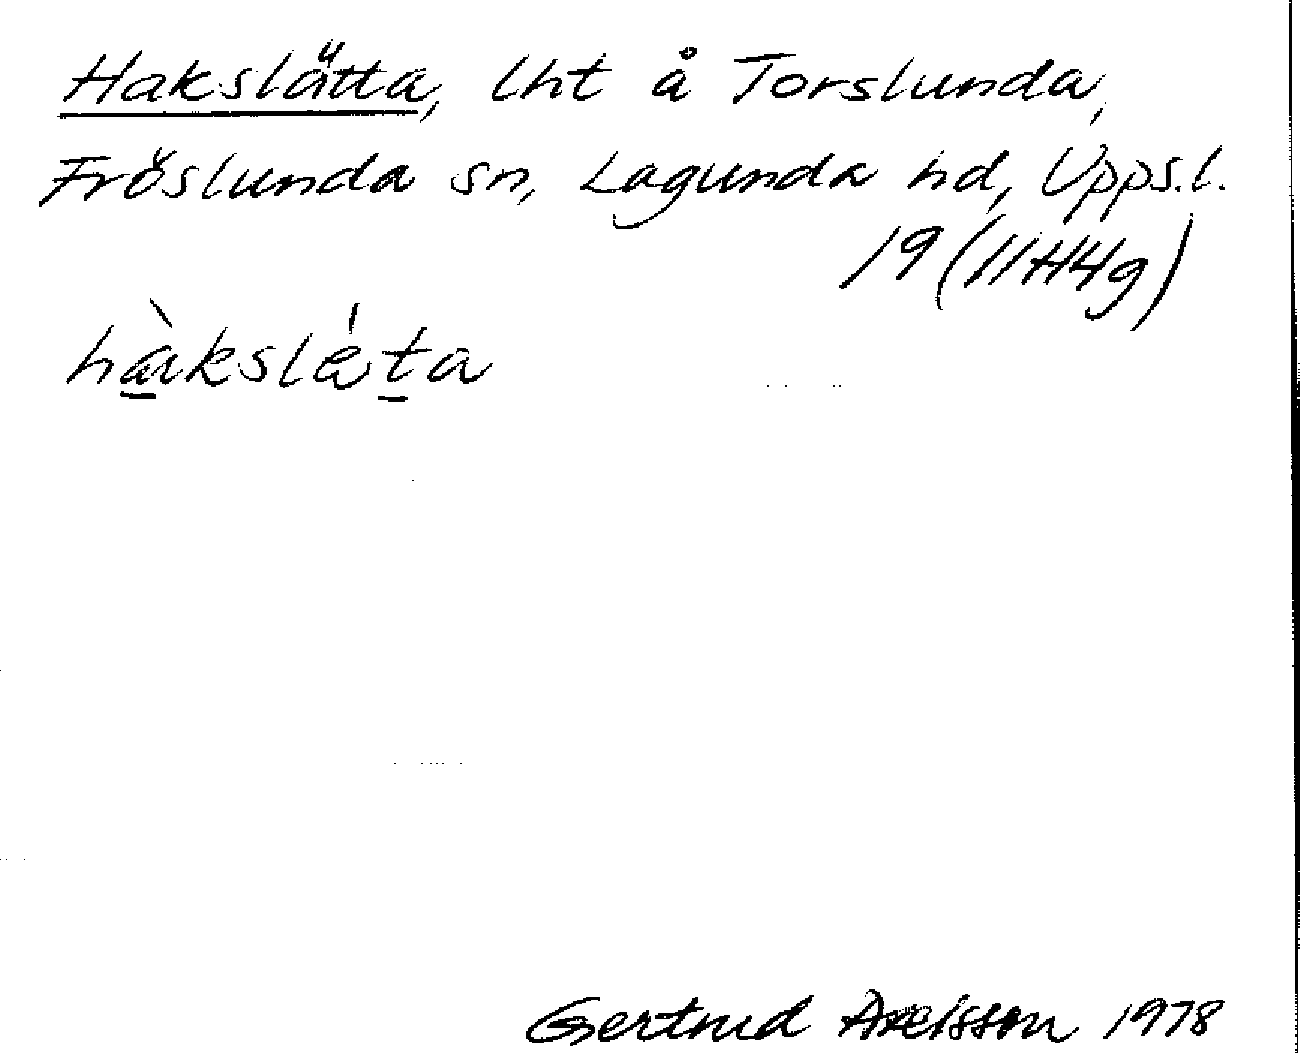 Hakslätta, lht å Torslunda,
Fröslunda sn, Lagunda hd, Upps.l.
19 (11H4g)
hàkslǽta
Gertrud Axelsson 1978